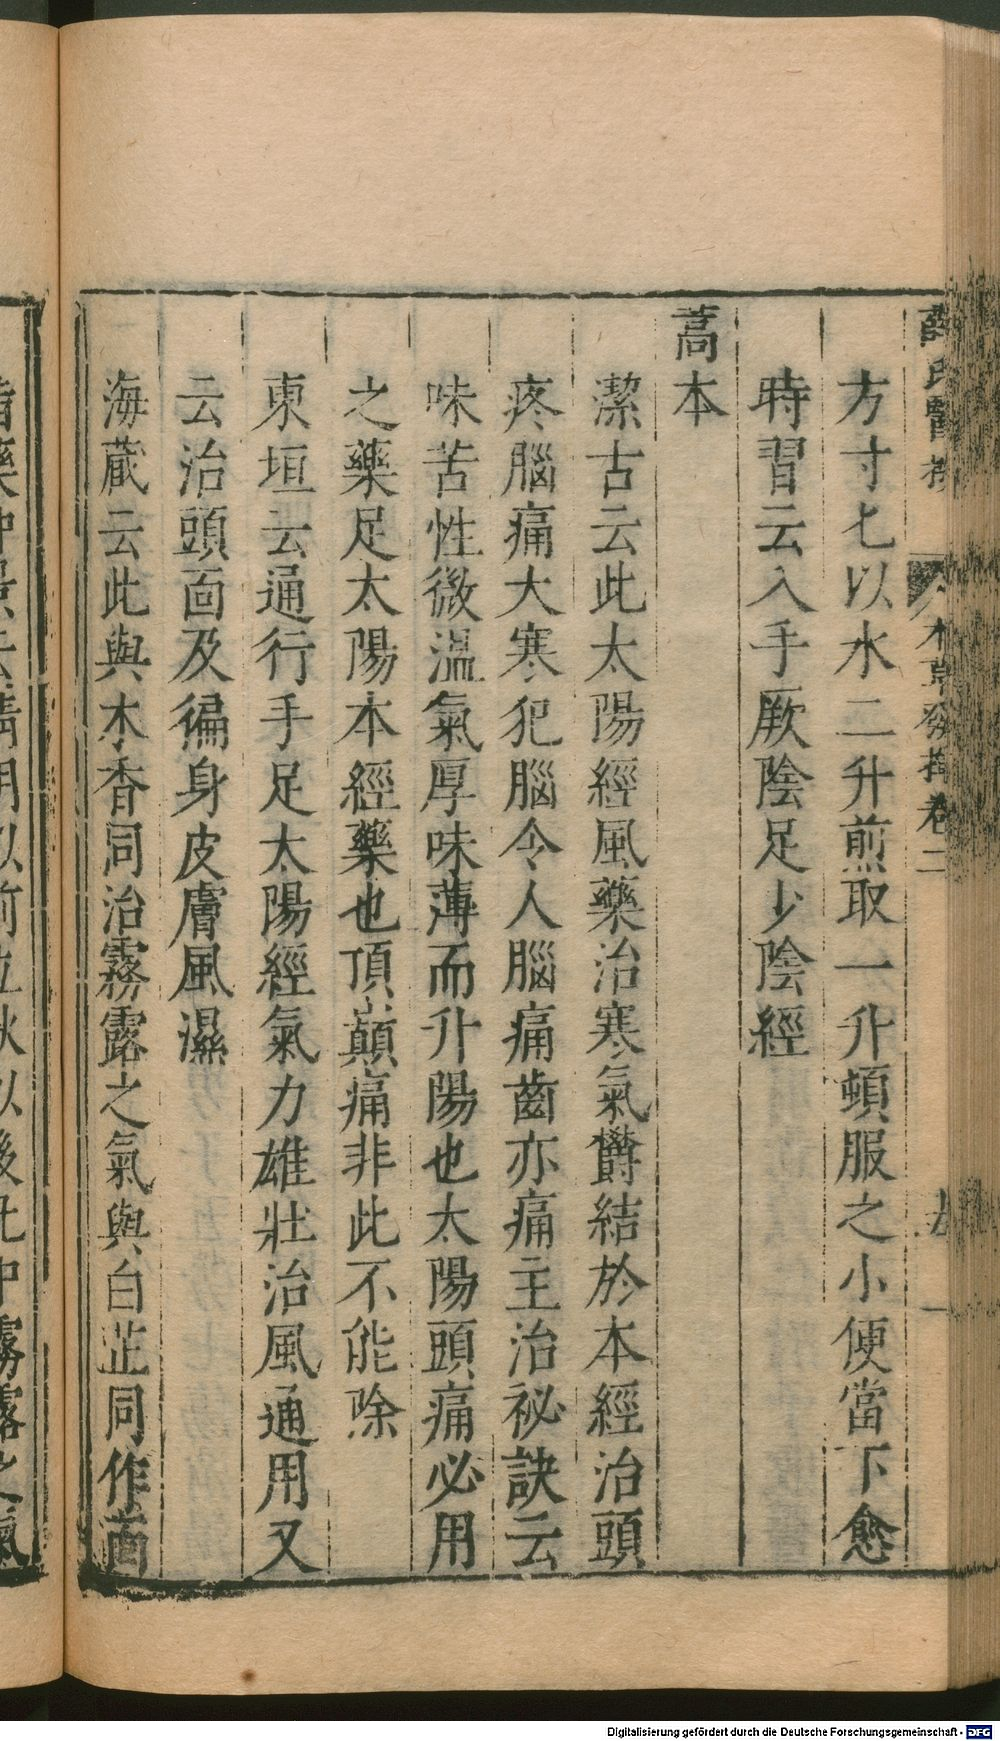 本草發揮卷二
方寸匕以水二升煎取一升頓服之小便當下愈
時習云入手厥陰足少陰經
蒿本
潔古云此太陽經風藥治寒氣欝結於本經治頭
疼腦痛大寒犯腦令人腦痛齒亦痛主治祕訣云
味苦性微溫氣厚味薄而升陽也太陽頭痛必用
之藥足太陽本經藥也頂巔痛非此不能除
東垣云通行手足太陽經氣力雄壯治風通用又
云治頭面及徧身皮膚風濕
海蔵云此與木香同治霧露之氣與白芷同作面
Digitalisierung gefördert durch die Deutsche Forschungsgemeinschaft - DFG